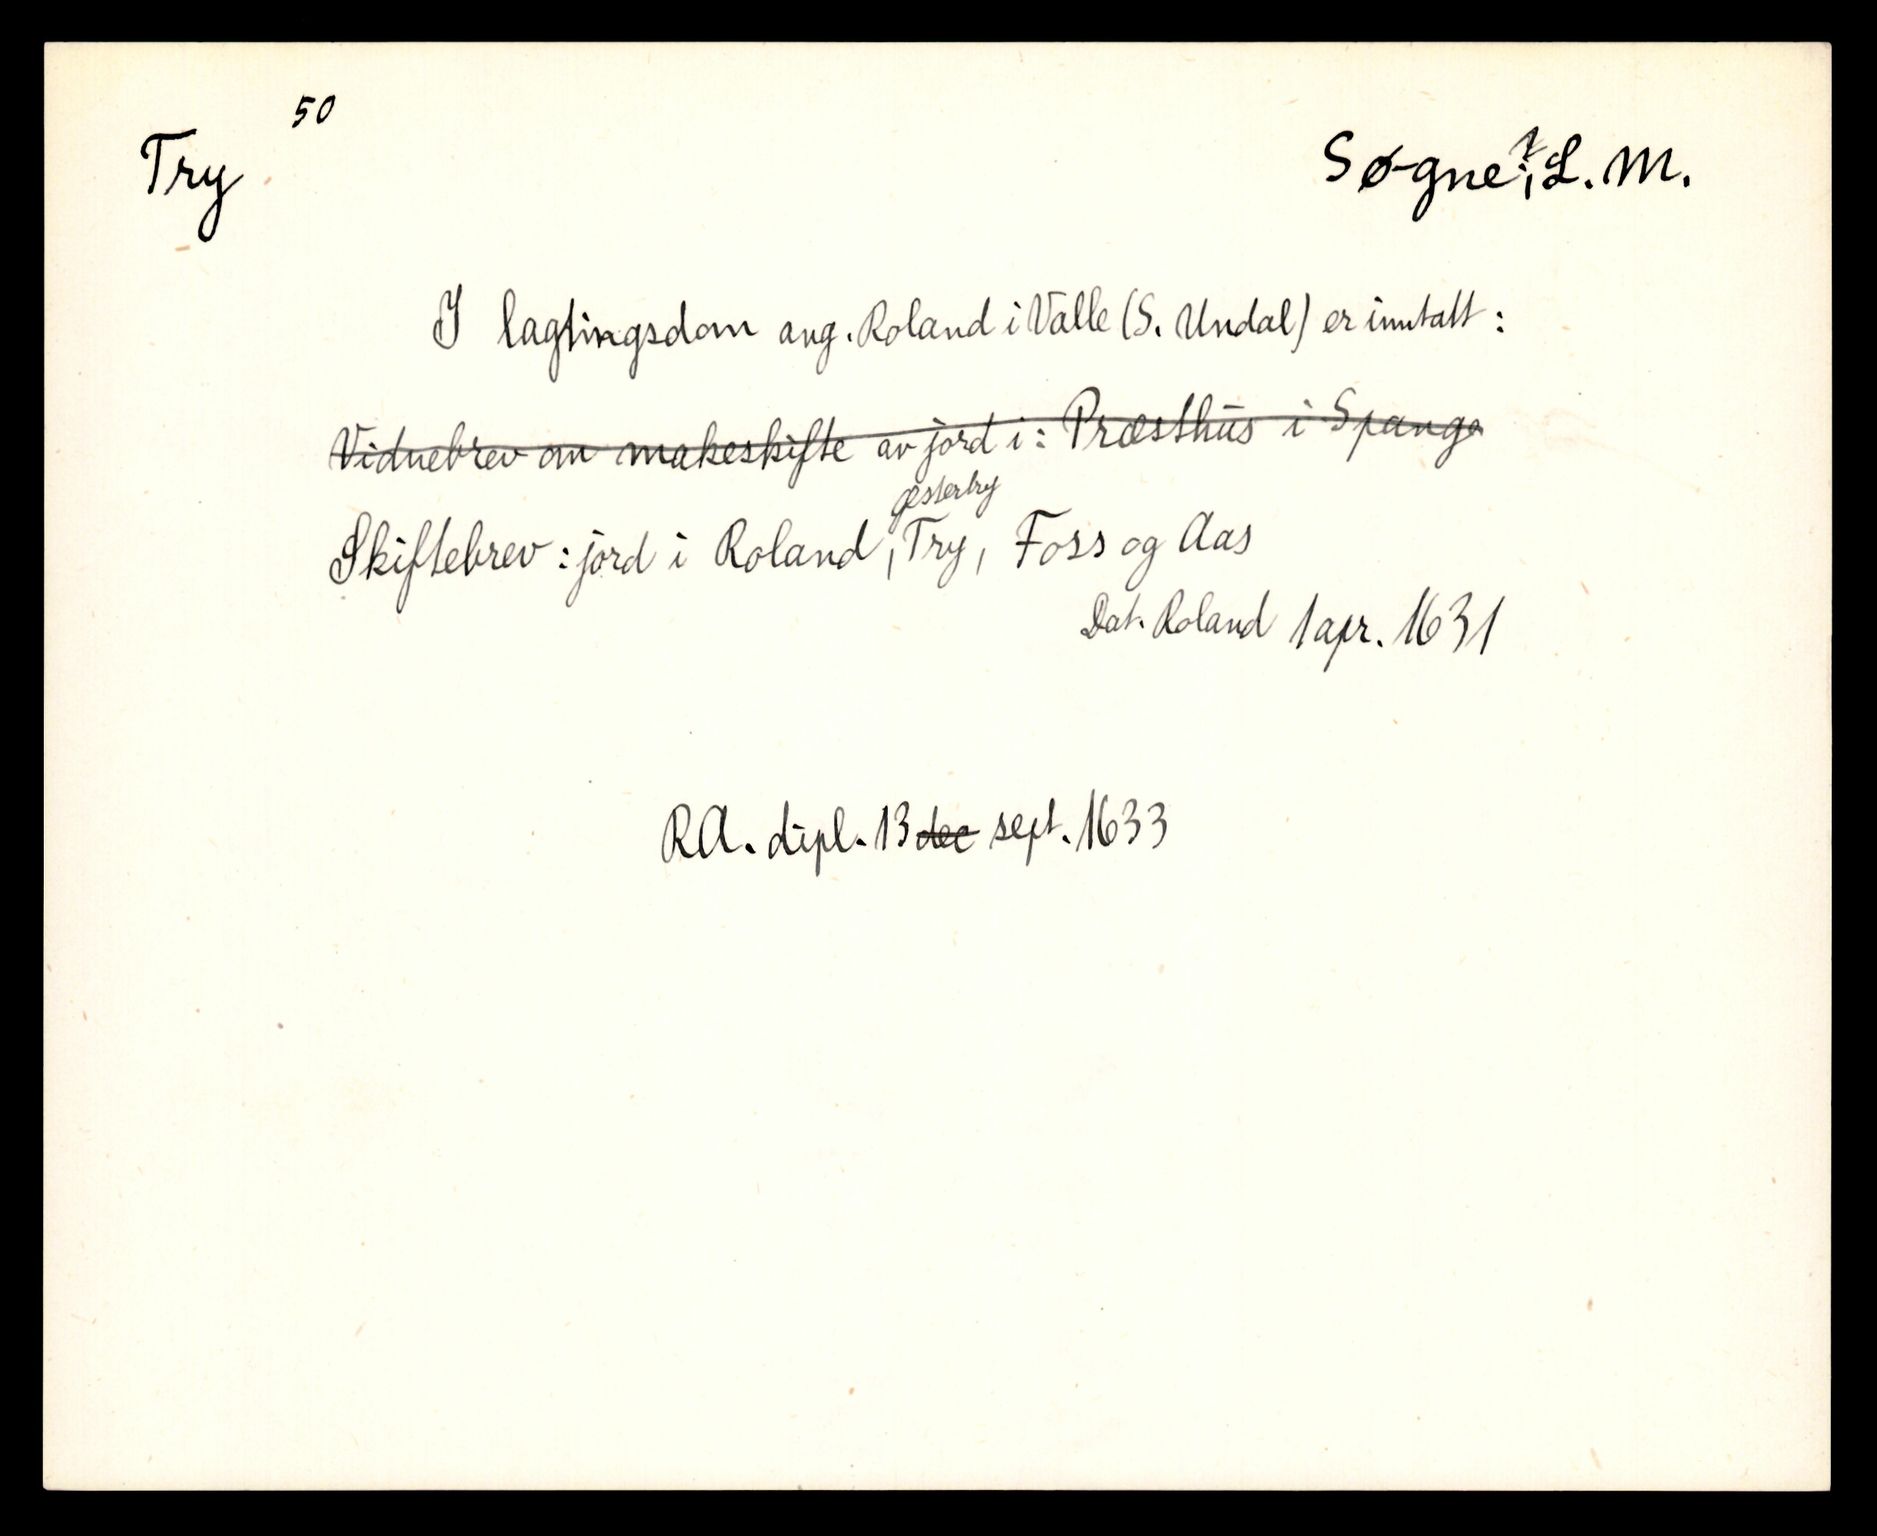 50
Try
Søgne?, L. M.
I lagtingsdom ang. Roland i Valle (S. Undal) er inntatt:
Vidnebrev om makeskifte av jord i: Præsthus i Spango
østertry
Skiftebrev: jord i Roland, Try, Foss og Aas
Dat. Roland 1 apr. 1631
RA. dipl. 13 dec sept. 1633